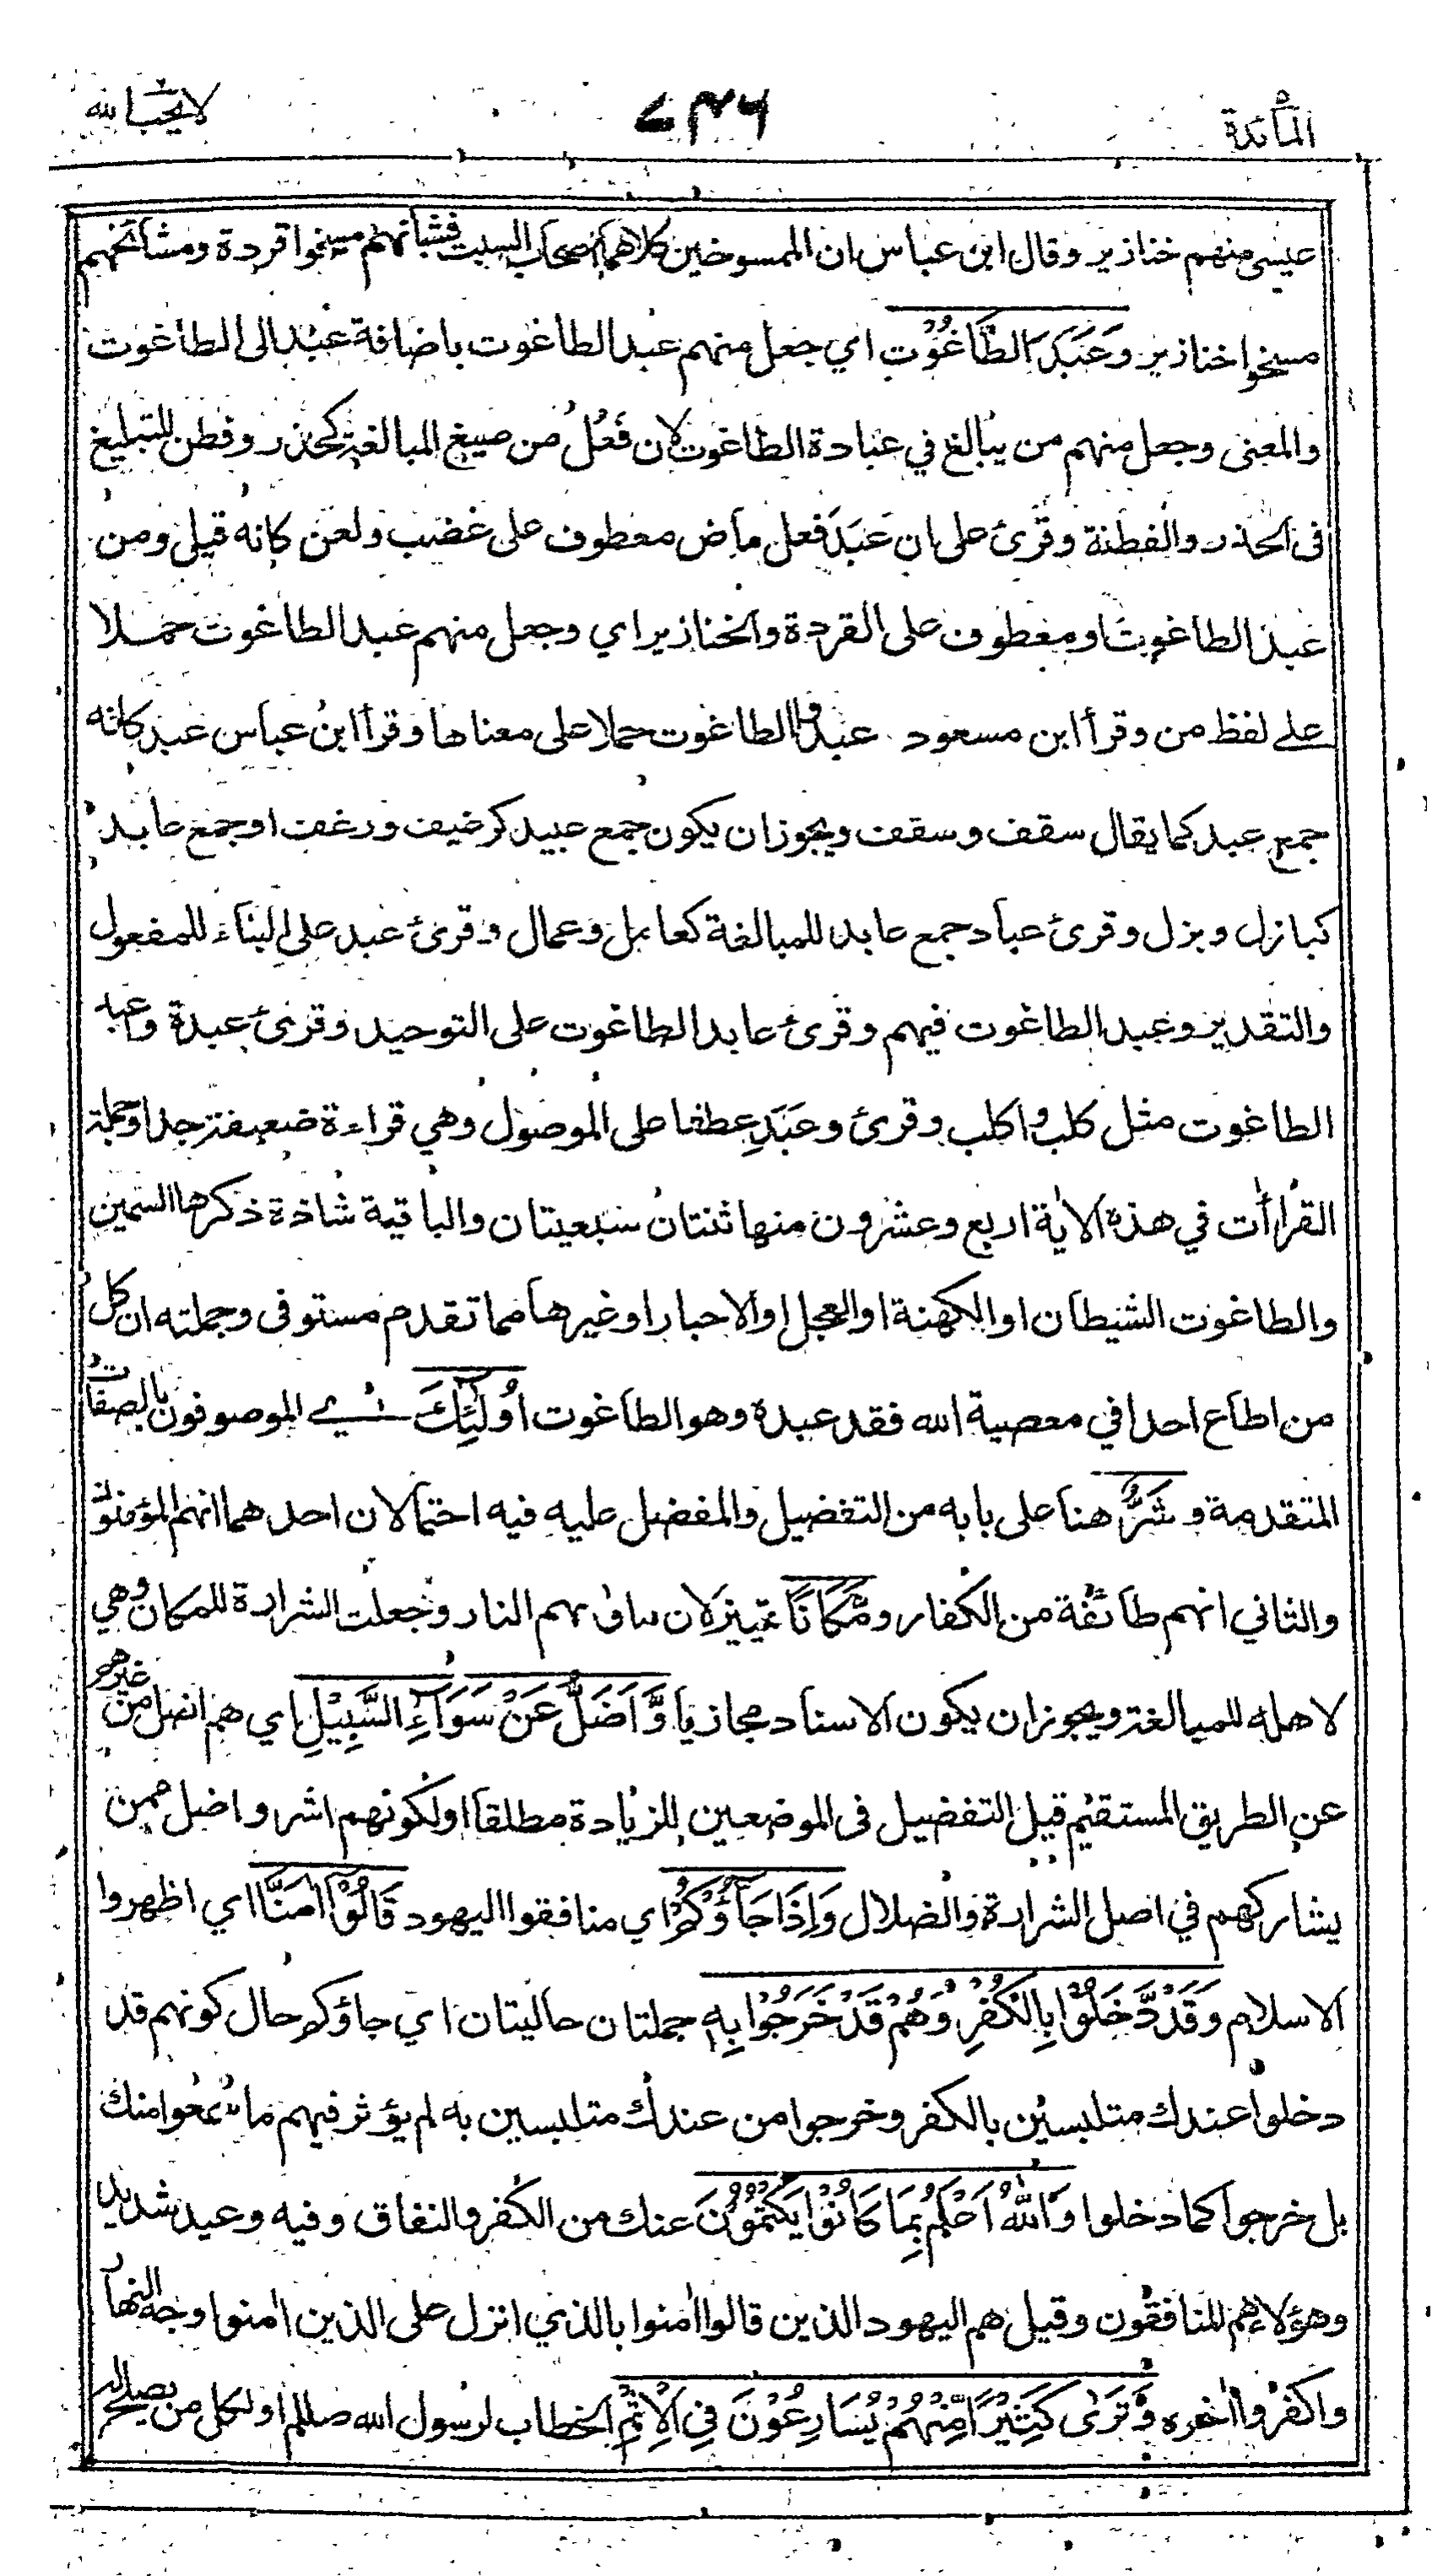 المائدة
٧٣٦
لا يحب الله
عيسى منهم خنازير وقال ابن عباس ان الممسوخين كلاهما من اصحاب السبت فشبانهم مسخوا قردة ومشائخهم
مسخوا خنازير وَعَبَدَ الطَّاغُوْتِ اي جعل منهم عبد الطاغوت باضافة عبد الى الطاغوت
والمعنى وجعل منهم من يبالغ في عبادة الطاغوت لان فَعُلَ من صيغ المبالغة كحذر وفطن للتبليغ
فى الحذر والفطنة وقرئ على ان عَبَدَ فعل ماض معطوف على غضب ولعن كانه قيل ومن
عبد الطاغوت او معطوف على القردة والخنازير اي وجعل منهم عبد الطاغوت حملا
على لفظ من وقرأ ابن مسعود عبدوا الطاغوت حملا على معناها وقرأ ابن عباس عبد كانه
جمع عبد كما يقال سقف وسقف ويجوز ان يكون جمع عبيد كرغيف ورغف او جمع عابد
كبازل وبزل وقرئ عباد جمع عابد للمبالغة كعامل وعمال وقرئ عبد على البناء للمفعول
والتقدير وعبد الطاغوت فيهم وقرئ عابد الطاغوت على التوحيد وقرئ عبدة واعبد
الطاغوت مثل كلب واكلب وقرئ وعَبَدِ عطفا على الموصول وهي قراءة ضعيفة جدا وجملة
القراأت في هذه الاية اربع وعشرون منها ثنتان سبعيتان والباقية شاذة ذكرها السمين
والطاغوت الشيطان او الكهنة او العجل او الاحبار او غيرها مما تقدم مستوفى وجملته ان كل
من اطاع احدا في معصية الله فقد عبده وهو الطاغوت اُولٰٓئِكَ اي الموصوفون بالصفات
المتقدمة و شَرٌّ هنا على بابه من التفضيل والمفضل عليه فيه احتمالان احدهما انهم المؤمنون
والثاني انهم طائفة من الكفار و مَّكَانًا تمييز لان ماواهم النار وجعلت الشرارة للمكان وهي
لاهله للمبالغة ويجوز ان يكون الاسناد مجازيا وَّاَضَلُّ عَنْ سَوَآءِ السَّبِيْلِ اي هم اضل من غيرهم
عن الطريق المستقيم قيل التفضيل فى الموضعين للزيادة مطلقا او لكونهم اشر واضل ممن
يشاركهم في اصل الشرارة والضلال وَاِذَا جَآؤُكُمْ اي منافقوا اليهود قَالُوْٓا اٰمَنَّا اي اظهروا
الاسلام وَقَدْ دَّخَلُوْا بِالْكُفْرِ وَهُمْ قَدْ خَرَجُوْا بِهٖ جملتان حاليتان اي جاؤكم حال كونهم قد
دخلوا عندك متلبسين بالكفر وخرجوا من عندك متلبسين به لم يؤثر فيهم ما سمعوا منك
بل خرجوا كما دخلوا وَاللّٰهُ اَعْلَمُ بِمَا كَانُوْا يَكْتُمُوْنَ عنك من الكفر والنفاق وفيه وعيد شديد
وهؤلاء هم المنافقون وقيل هم اليهود الذين قالوا اٰمنوا بالذي انزل على الذين اٰمنوا وجه النهار
واكفروا اٰخره وَتَرٰى كَثِيْرًا مِّنْهُمْ يُسَارِعُوْنَ فِي الْاِثْمِ الخطاب لرسول الله صللم او لكل من يصلح له